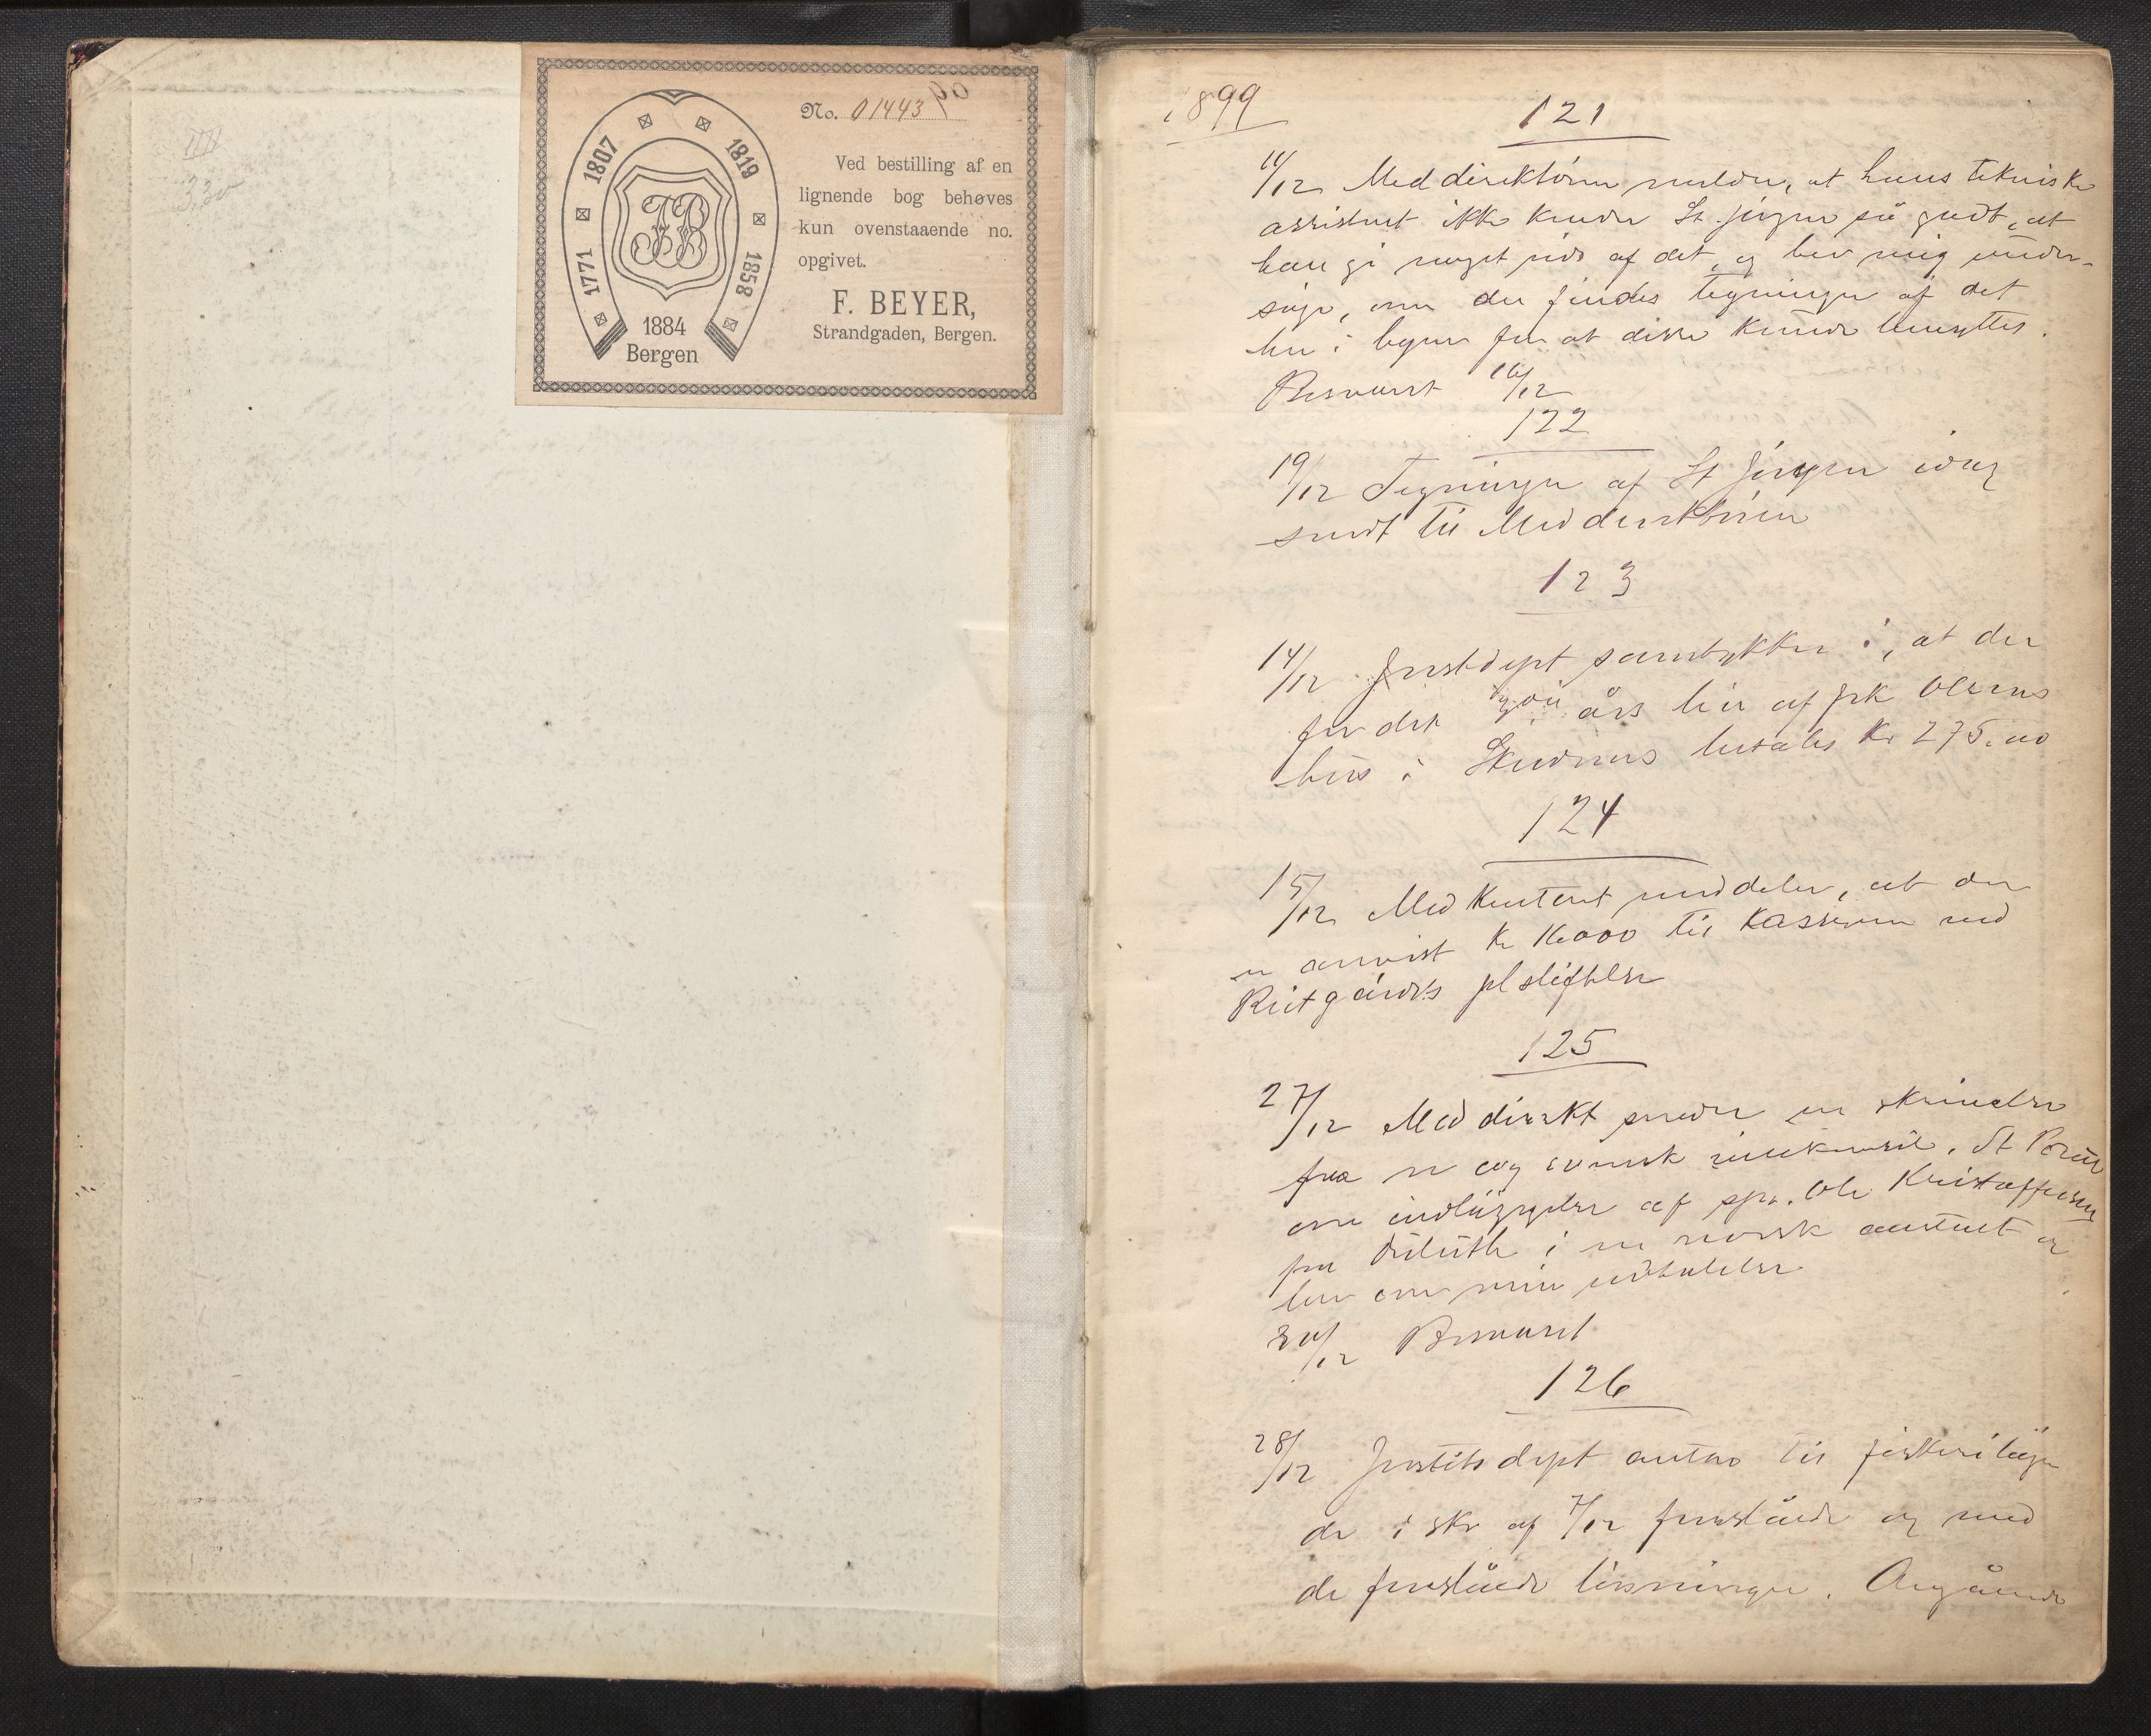 IIII
3,30
1771
1807
1819
1858
1884
Bergen
FB
No. 01443
99
Ved bestilling af en
lignende bog behøves
kun ovenstaaende no.
opgivet.
F. BEYER,
Strandgaden, Bergen.
1899
121
11/12 Meddirektören melder, at hans tekniske
assistent ikke kender St. Jörgen så godt, at
han gi noget af det, og ber mig under-
söge, om der findes tegninger af det
her i byen for at disse kunde benyttes.
Besvaret 16/12
122
19/12 Tegninger af St Jörgen idag
sendt til Meddirektören
123
14/12 Justdept samtykker i, at der
for det års leie af frk Olsens
hus i Skudenes betales Kr 275.00
124
15/12 Med Kontoret meddeler, at der
er anvist Kr 16000 til Kassereren ved
Reitgjærdets plstiftelse
125
27/12 Meddirekt sender en skrivelse
fra n og svensk St Paul
om indlæggelse af sps. Ole Kristoffersen
fra Duluth i en norsk anstalt og
ber om min udtalelse
30/12 Besvaret
126
28/12 Justitsdept antar til fiskerilæger
de i skr af 7/12 foreslåede og med
de foreslåede lönninger. Angående